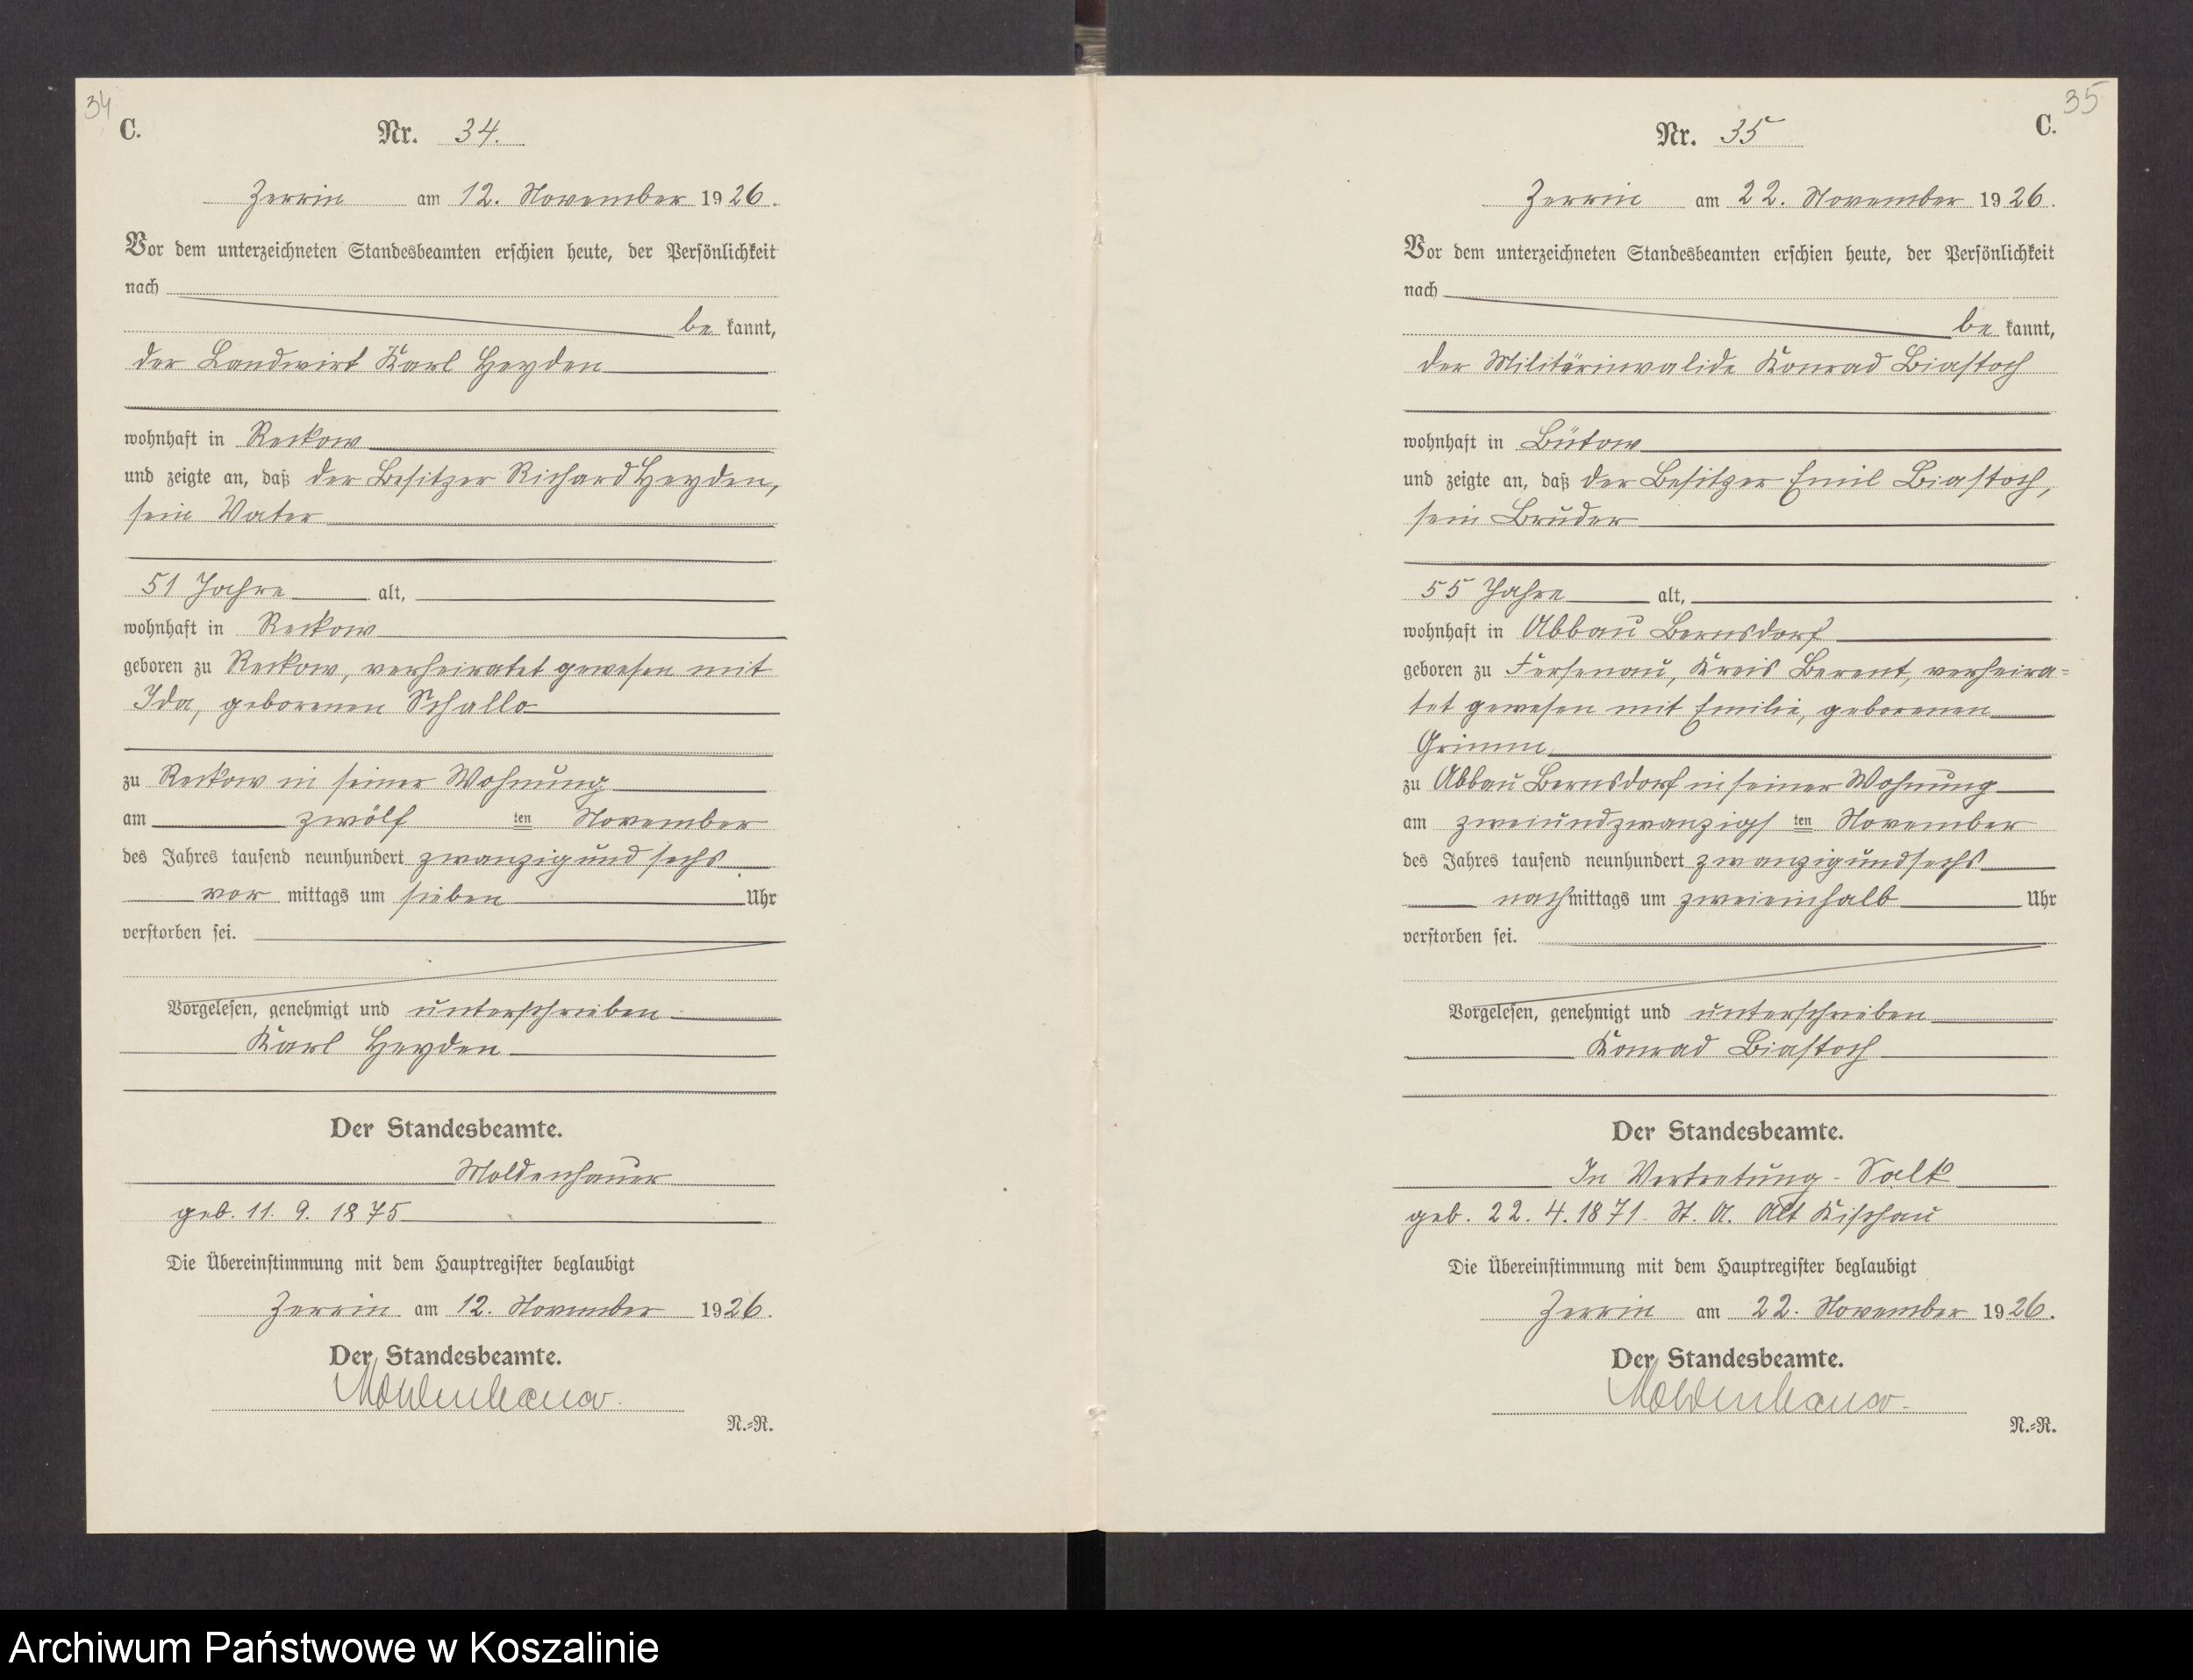 34
C.
Nr. 34.
Zerrin am 12. November 1926.
Vor dem unterzeichneten Standesbeamten erschien heute, der Persönlichkeit
nach
be kannt,
der Landwirt Karl Heyden
wohnhaft in Reckow
und zeigte an, daß der Besitzer Richard Heyden,
sein Vater
51 Jahre alt,
wohnhaft in Reckow
geboren zu Reckow, verheiratet gewesen mit
Ida, geborenen Schallo
zu Reckow in seiner Wohnung
am zwölf ten November
des Jahres tausend neunhundert zwanzig und sechs
vor mittags um sieben Uhr
verstorben sei.
Vorgelesen, genehmigt und unterschrieben
Karl Heyden
Der Standesbeamte.
Moldenhauer
geb. 11. 9. 1875
Die Übereinstimmung mit dem Hauptregister beglaubigt
Zerrin am 12. November 1926.
Der Standesbeamte.
Moldenhauer.
N.=R.
35
C.
Nr. 35
Zerrin am 22. November 1926.
Vor dem unterzeichneten Standesbeamten erschien heute, der Persönlichkeit
nach
be kannt,
der Militärinvalide Konrad Biastoch
wohnhaft in Bütow
und zeigte an, daß der Besitzer Emil Biastoch,
sein Bruder
55 Jahre alt,
wohnhaft in Abbau Bernsdorf
geboren zu Fersenau, Kreis Berent, verheira=
tet gewesen mit Emilie, geborenen
Grimm
zu Abbau Bernsdorf in seiner Wohnung
am zweiundzwanzigs ten November
des Jahres tausend neunhundert zwanzigundsechs
nachmittags um zweieinhalb Uhr
verstorben sei.
Vorgelesen, genehmigt und unterschrieben
Konrad Biastoch
Der Standesbeamte.
In Vertretung - Salk
geb. 22. 4. 1871. St. A. Alt Kischau
Die Übereinstimmung mit dem Hauptregister beglaubigt
Zerrin am 22. November 1926.
Der Standesbeamte.
Moldenhauer.
N.=R.
Archiwum Państwowe w Koszalinie